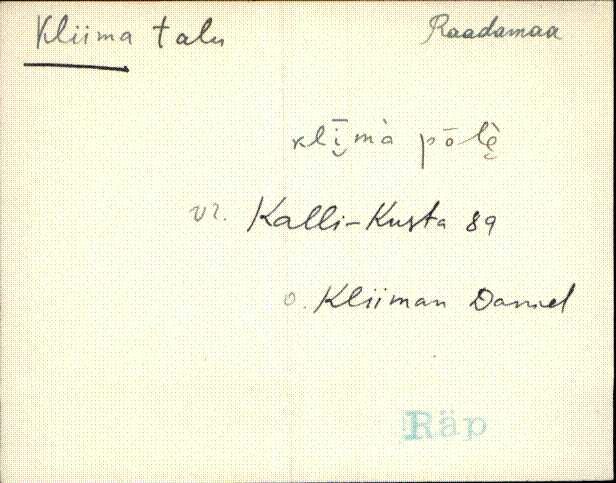 Kliima talu Raadamaa
klī̮mà pōlè̮
vr. Kalli-Kusta 89
o. Kliiman Daniel
Räp